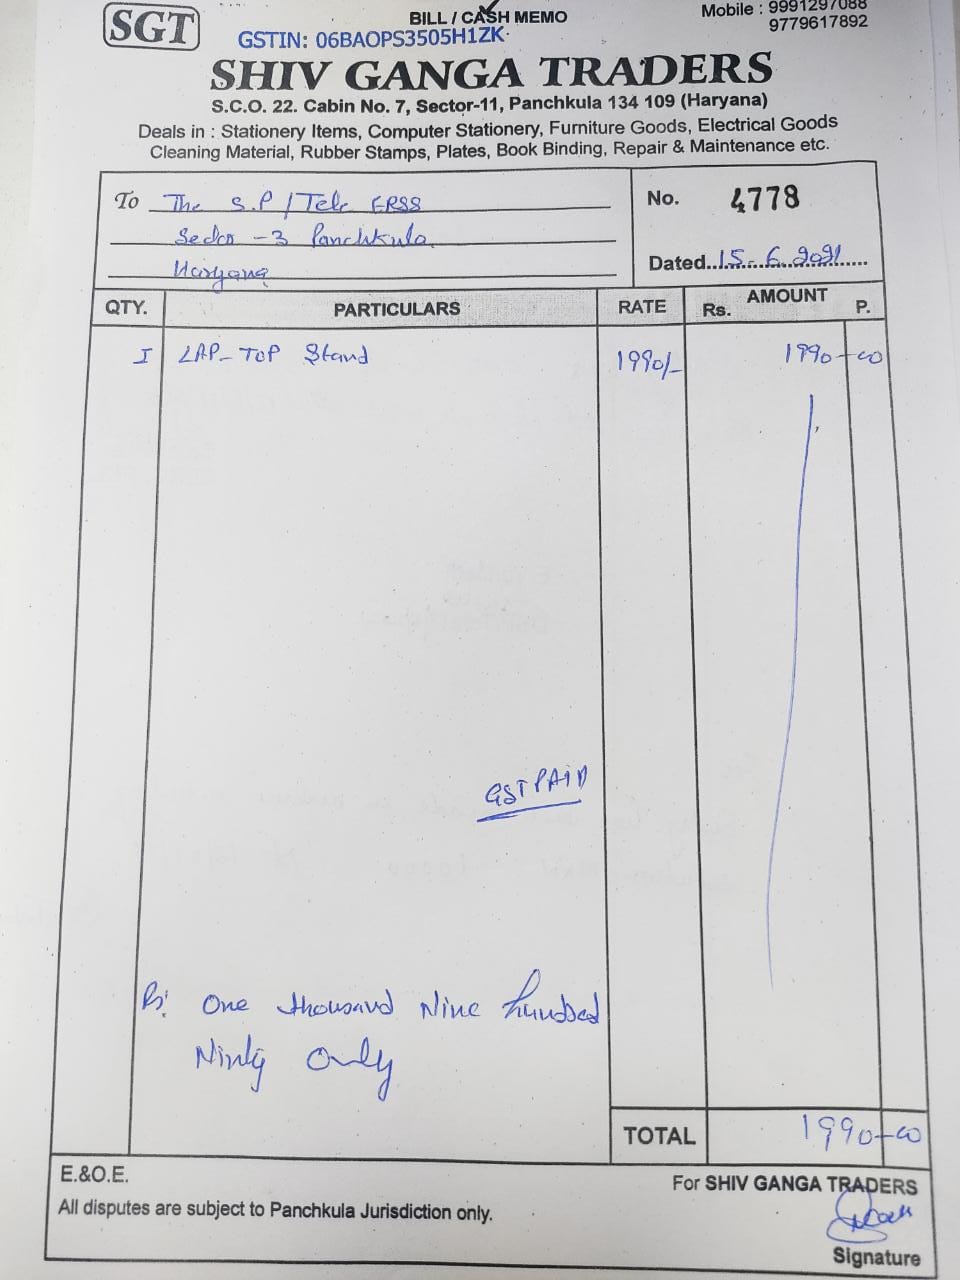 SGT
BILL / CASH MEMO
Mobile : 9991297088
9779617892
GSTIN: 06BAOPS3505H1ZK
SHIV GANGA TRADERS
S.C.O. 22. Cabin No. 7, Sector-11, Panchkula 134 109 (Haryana)
Deals in : Stationery Items, Computer Stationery, Furniture Goods, Electrical Goods
Cleaning Material, Rubber Stamps, Plates, Book Binding, Repair & Maintenance etc.
To The S.P / Tele ERSS
Sector -3 Panchkula
Haryana
No. 4778
Dated..15.6.2021......
QTY. PARTICULARS RATE AMOUNT
Rs. P.
1 LAP-TOP Stand 1990/- 1990-00
GST PAID
Rs: One thousand Nine hundred
Ninty Only
TOTAL 1990-00
E.&O.E.
For SHIV GANGA TRADERS
All disputes are subject to Panchkula Jurisdiction only.
Signature